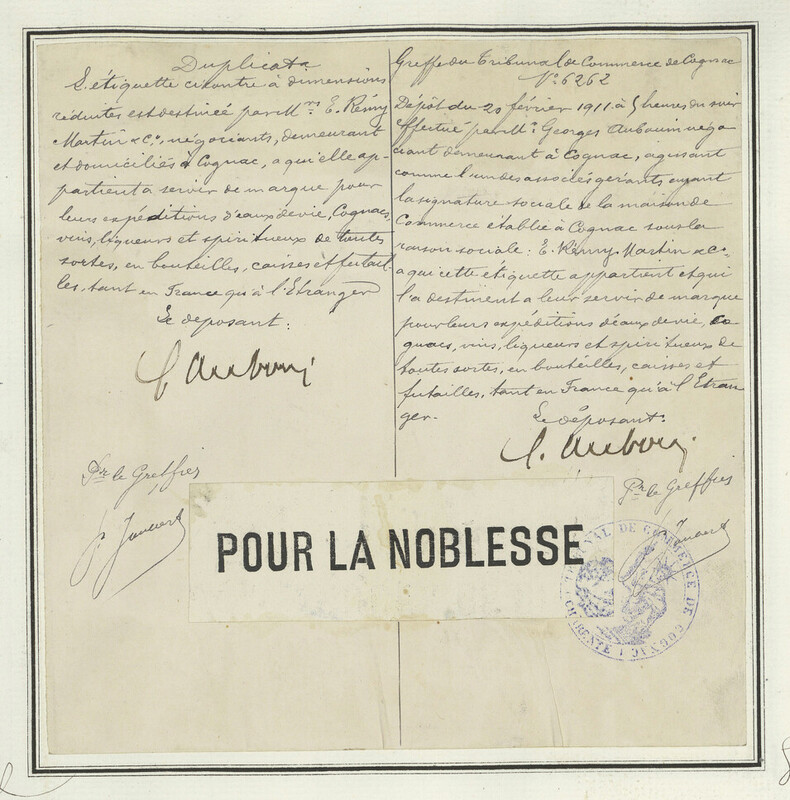 Duplicata
L'étiquette ci contre à dimensions
réduites est destinée par Mrs E. Rémy
Martin & Co, négociants, demeurant
et domiciliés à Cognac, a qui elle ap-
partient à servir de marque pour
leurs expéditions d'eaux de vie, Cognacs,
vins, liqueurs et spiritueux de toutes
sortes, en bouteilles, caisses et futail-
les, tant en France qu'à l'Etranger
Le deposant:
Pr le Greffier
Greffe du Tribunal de Commerce de Cognac
No 6262
Dépôt du 20 février 1911 à 5 heures du soir
Effectué par Mr Georges Auboin négo
ciant demeurant à Cognac, agissant
comme l'un des associés gérants ayant
la signature sociale de la maison de
Commerce établie à Cognac sous la
raison sociale: E. Rémy Martin & Co.
a qui cette étiquette appartient et qui
l'a destinent a leur servir de marque
pour leurs expéditions d'eaux de vie, co
gnacs, vins, liqueurs et spiritueux de
toutes sortes, en bouteilles, caisses et
futailles, tant en France qu'à l'Etran
ger-
Le déposant:
Pr le Greffier
POUR LA NOBLESSE
TRIBUNAL DE COMMERCE DE COGNAC
CHARENTE